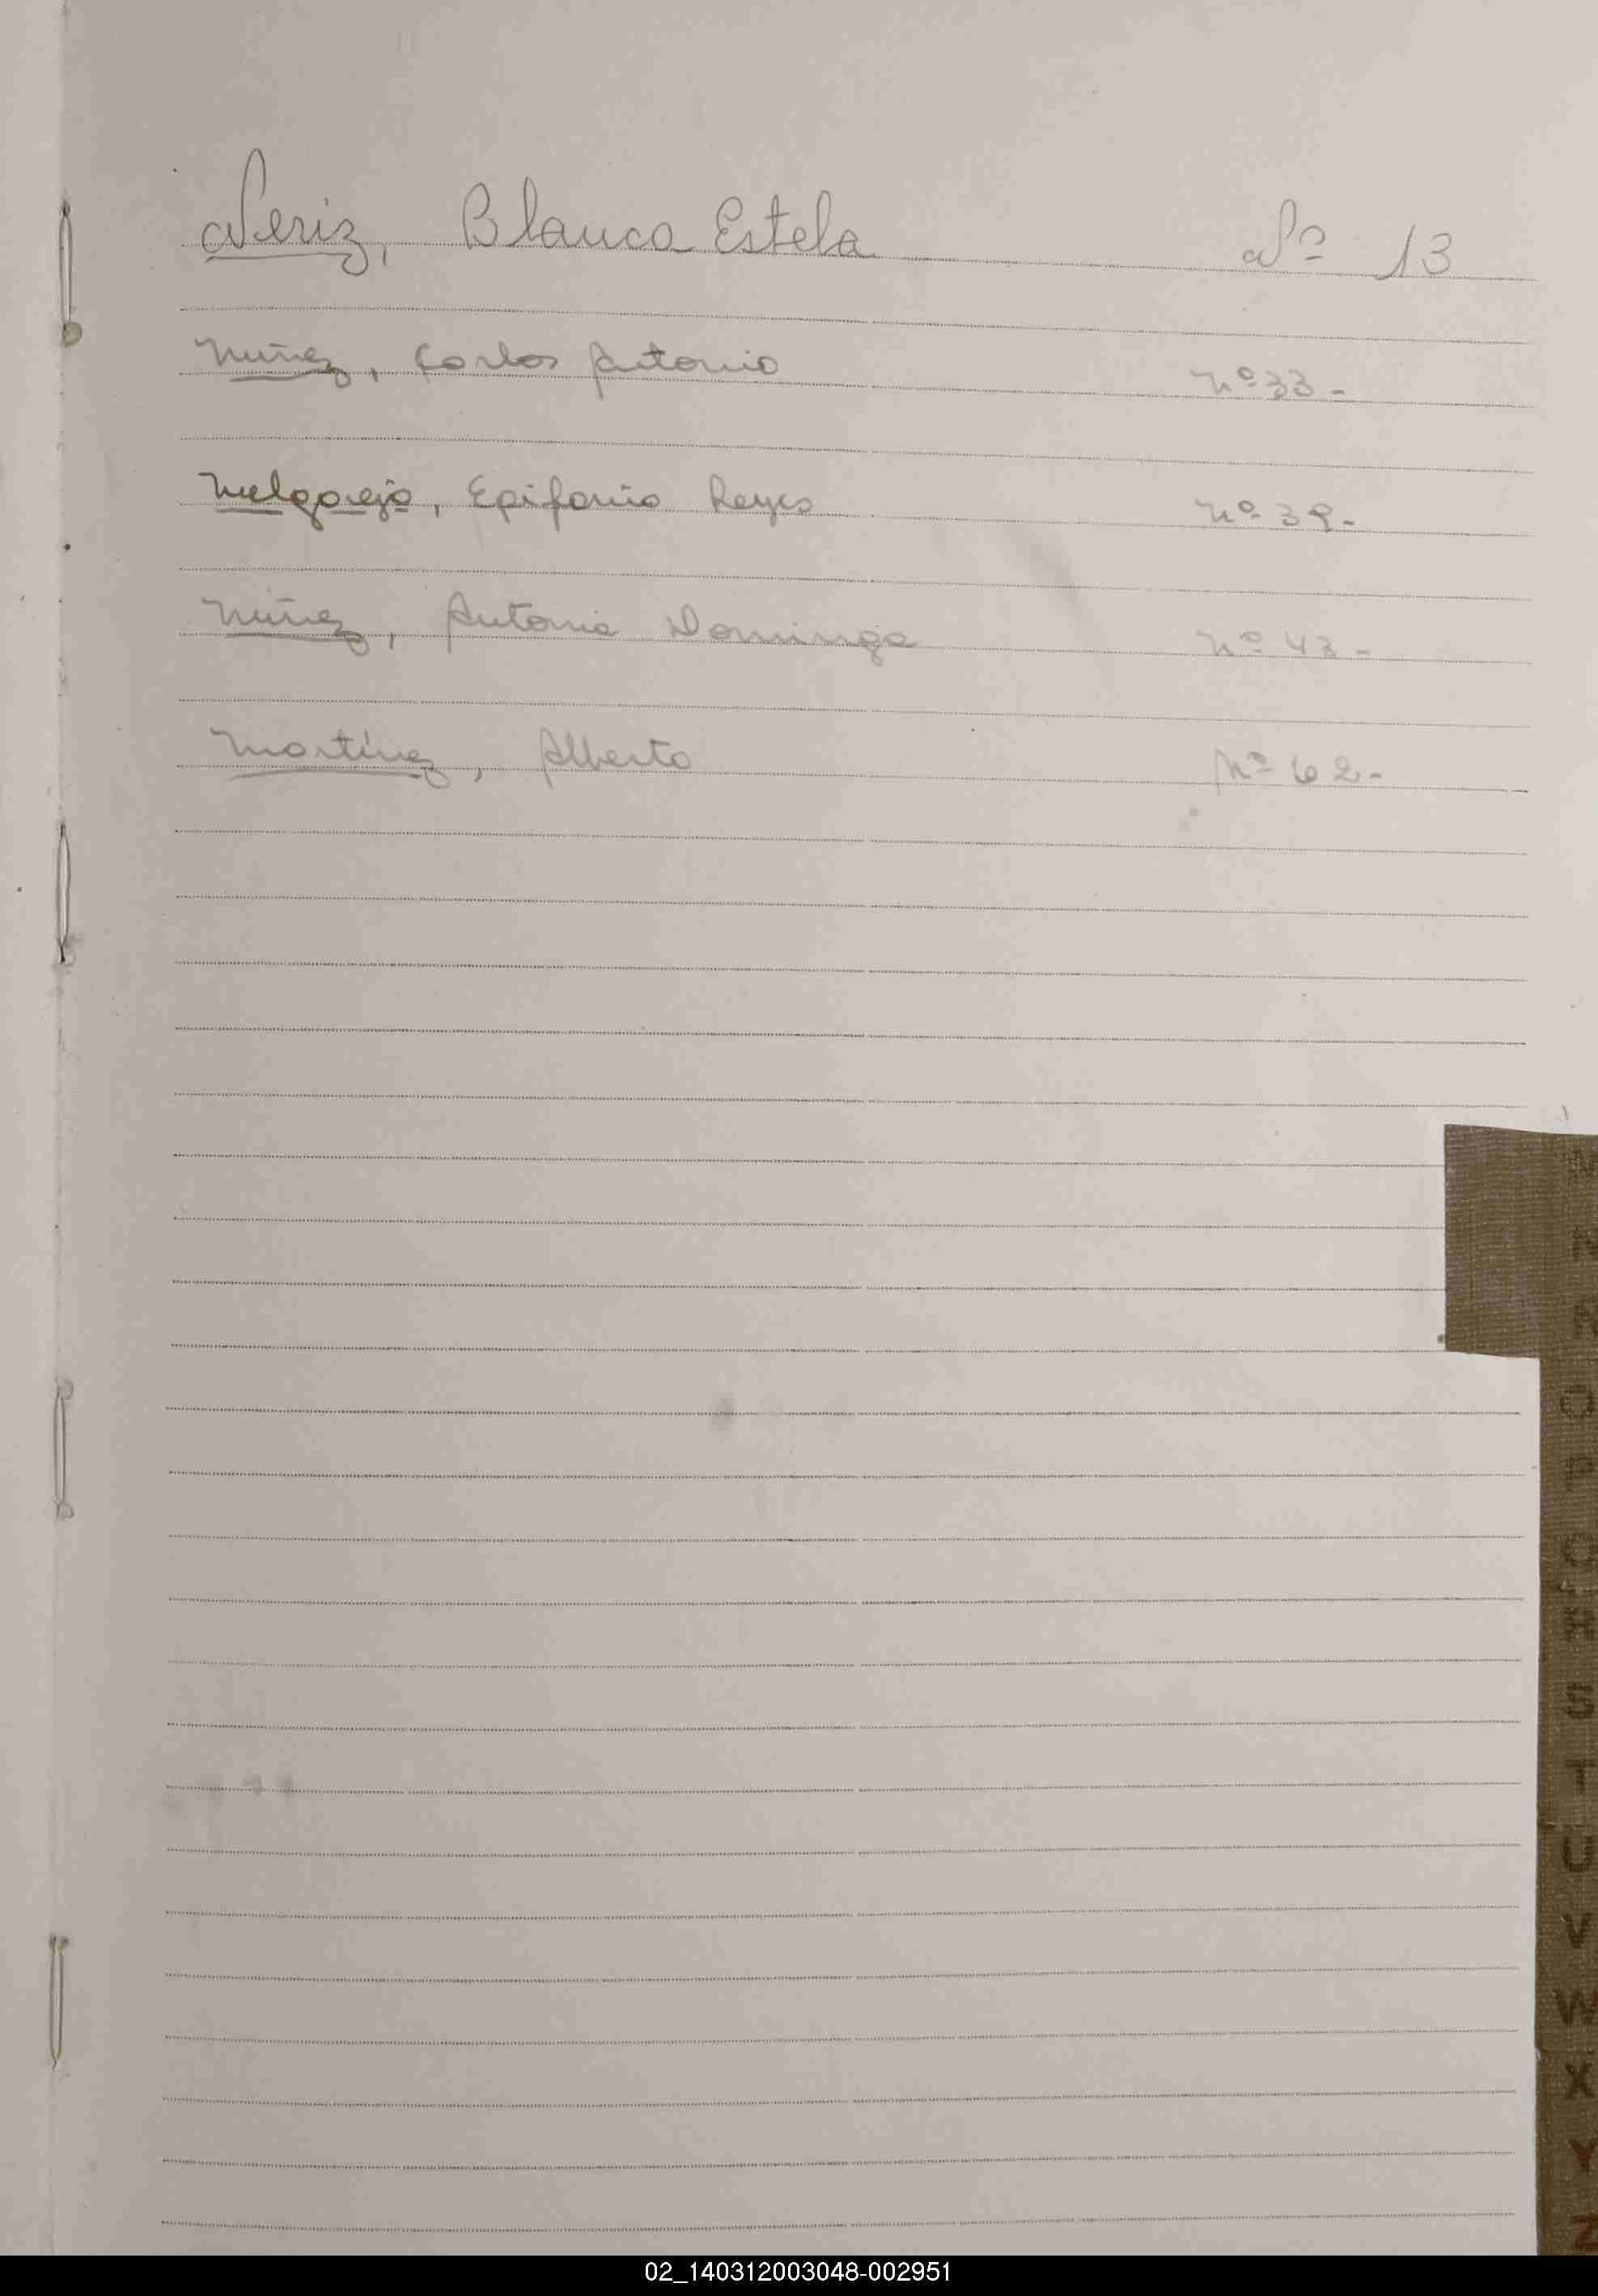 Neriz, Blanca Estela Nº 13
Nuñez, Carlos Antonio nº 33-
Melgarejo, Epifanio Reyes nº 39-
Nuñez, Antonia Dominga nº 43-
Martínez, Alberto Nº 62-
M
N
Ñ
O
P
Q
R
S
T
U
V
W
X
Y
Z
02_140312003048-002951